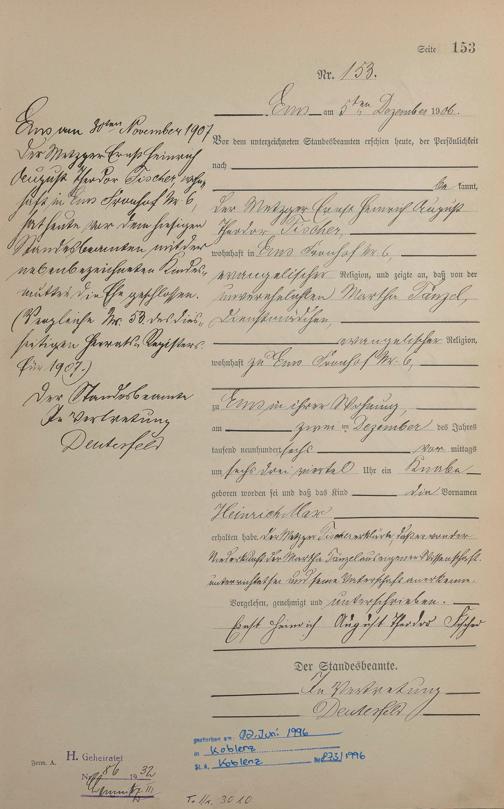 Seite 153
Nr. 153.
Ems am 5ten Dezember 1906.
Vor dem unterzeichneten Standesbeamten erschien heute, der Persönlichkeit
nach
be kannt,
der Metzger Ernst Heinrich August
Theodor Fischer,
wohnhaft in Ems Fronhof Nr. 6,
evangelischer Religion, und zeigte an, daß von der
unverehelichten Martha Tänzel,
Dienstmädchen,
evangelischer Religion,
wohnhaft zu Ems Fronhof Nr. 6,
zu Ems in ihrer Wohnung,
am zwei ten Dezember des Jahres
tausend neunhundert sechs vor mittags
um sechs drei viertel Uhr ein Knabe
geboren worden sei und daß das Kind die Vornamen
Heinrich Max
erhalten habe. Der Metzger Fischer erklärte, daß er von der
Niederkunft der Martha Tänzel aus eigener Wissenschaft
unterrichtet sei und seine Vaterschaft anerkenne.
Vorgelesen, genehmigt und unterschrieben.
Ernst Heinrich August Theodor Fischer
Der Standesbeamte.
In Vertretung
Deuterfeld
Ems am 30ten November 1907
Der Metzger Ernst Heinrich
August Theodor Fischer, wohn-
haft in Ems Fronhof Nr. 6,
hat heute vor dem hiesigen
Standesbeamten mit der
nebenbezeichneten Kindes-
mutter die Ehe geschlossen.
(Vergleiche Nr. 53 des dies-
seitigen Heirats-Registers
für 1907.)
Der Standesbeamte
In Vertretung
Deuterfeld
Form. A.
H. Geheiratet
Nr. 86 1932
gestorben am: 02. Juni 1996
in Koblenz
St. A. Koblenz Nr. 873/1996